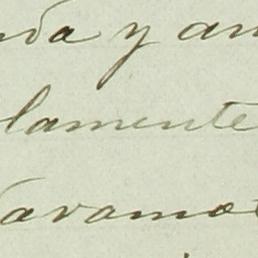 nda y an
lamente
avamo